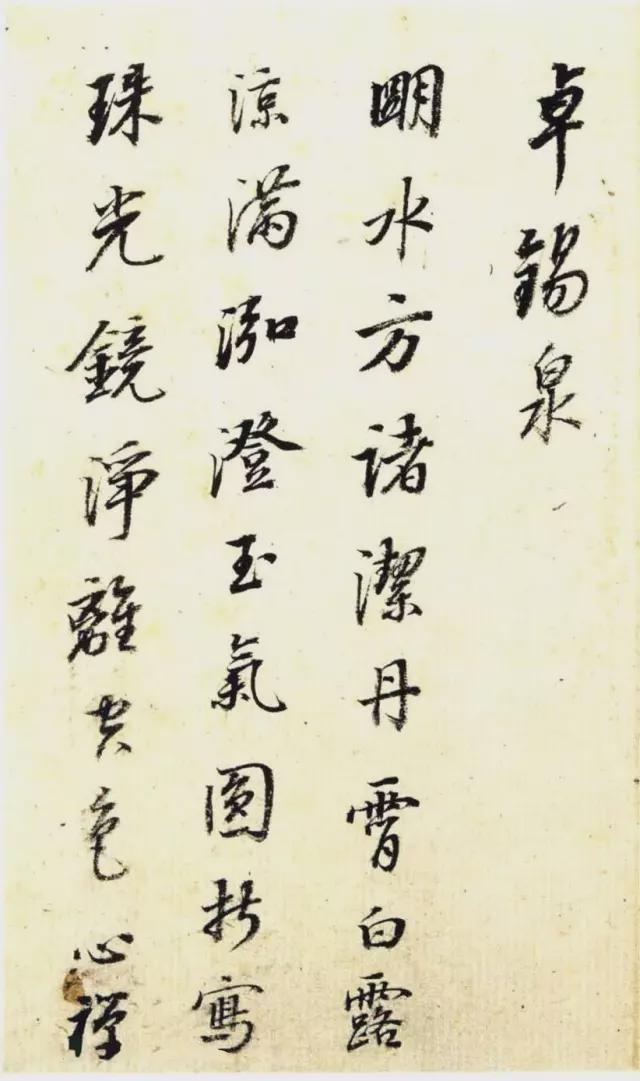 卓錫泉
朙水方諸潔丹霄白露
涼滿泓澄玉氣圓折寫
珠光鏡淨離空色心禪